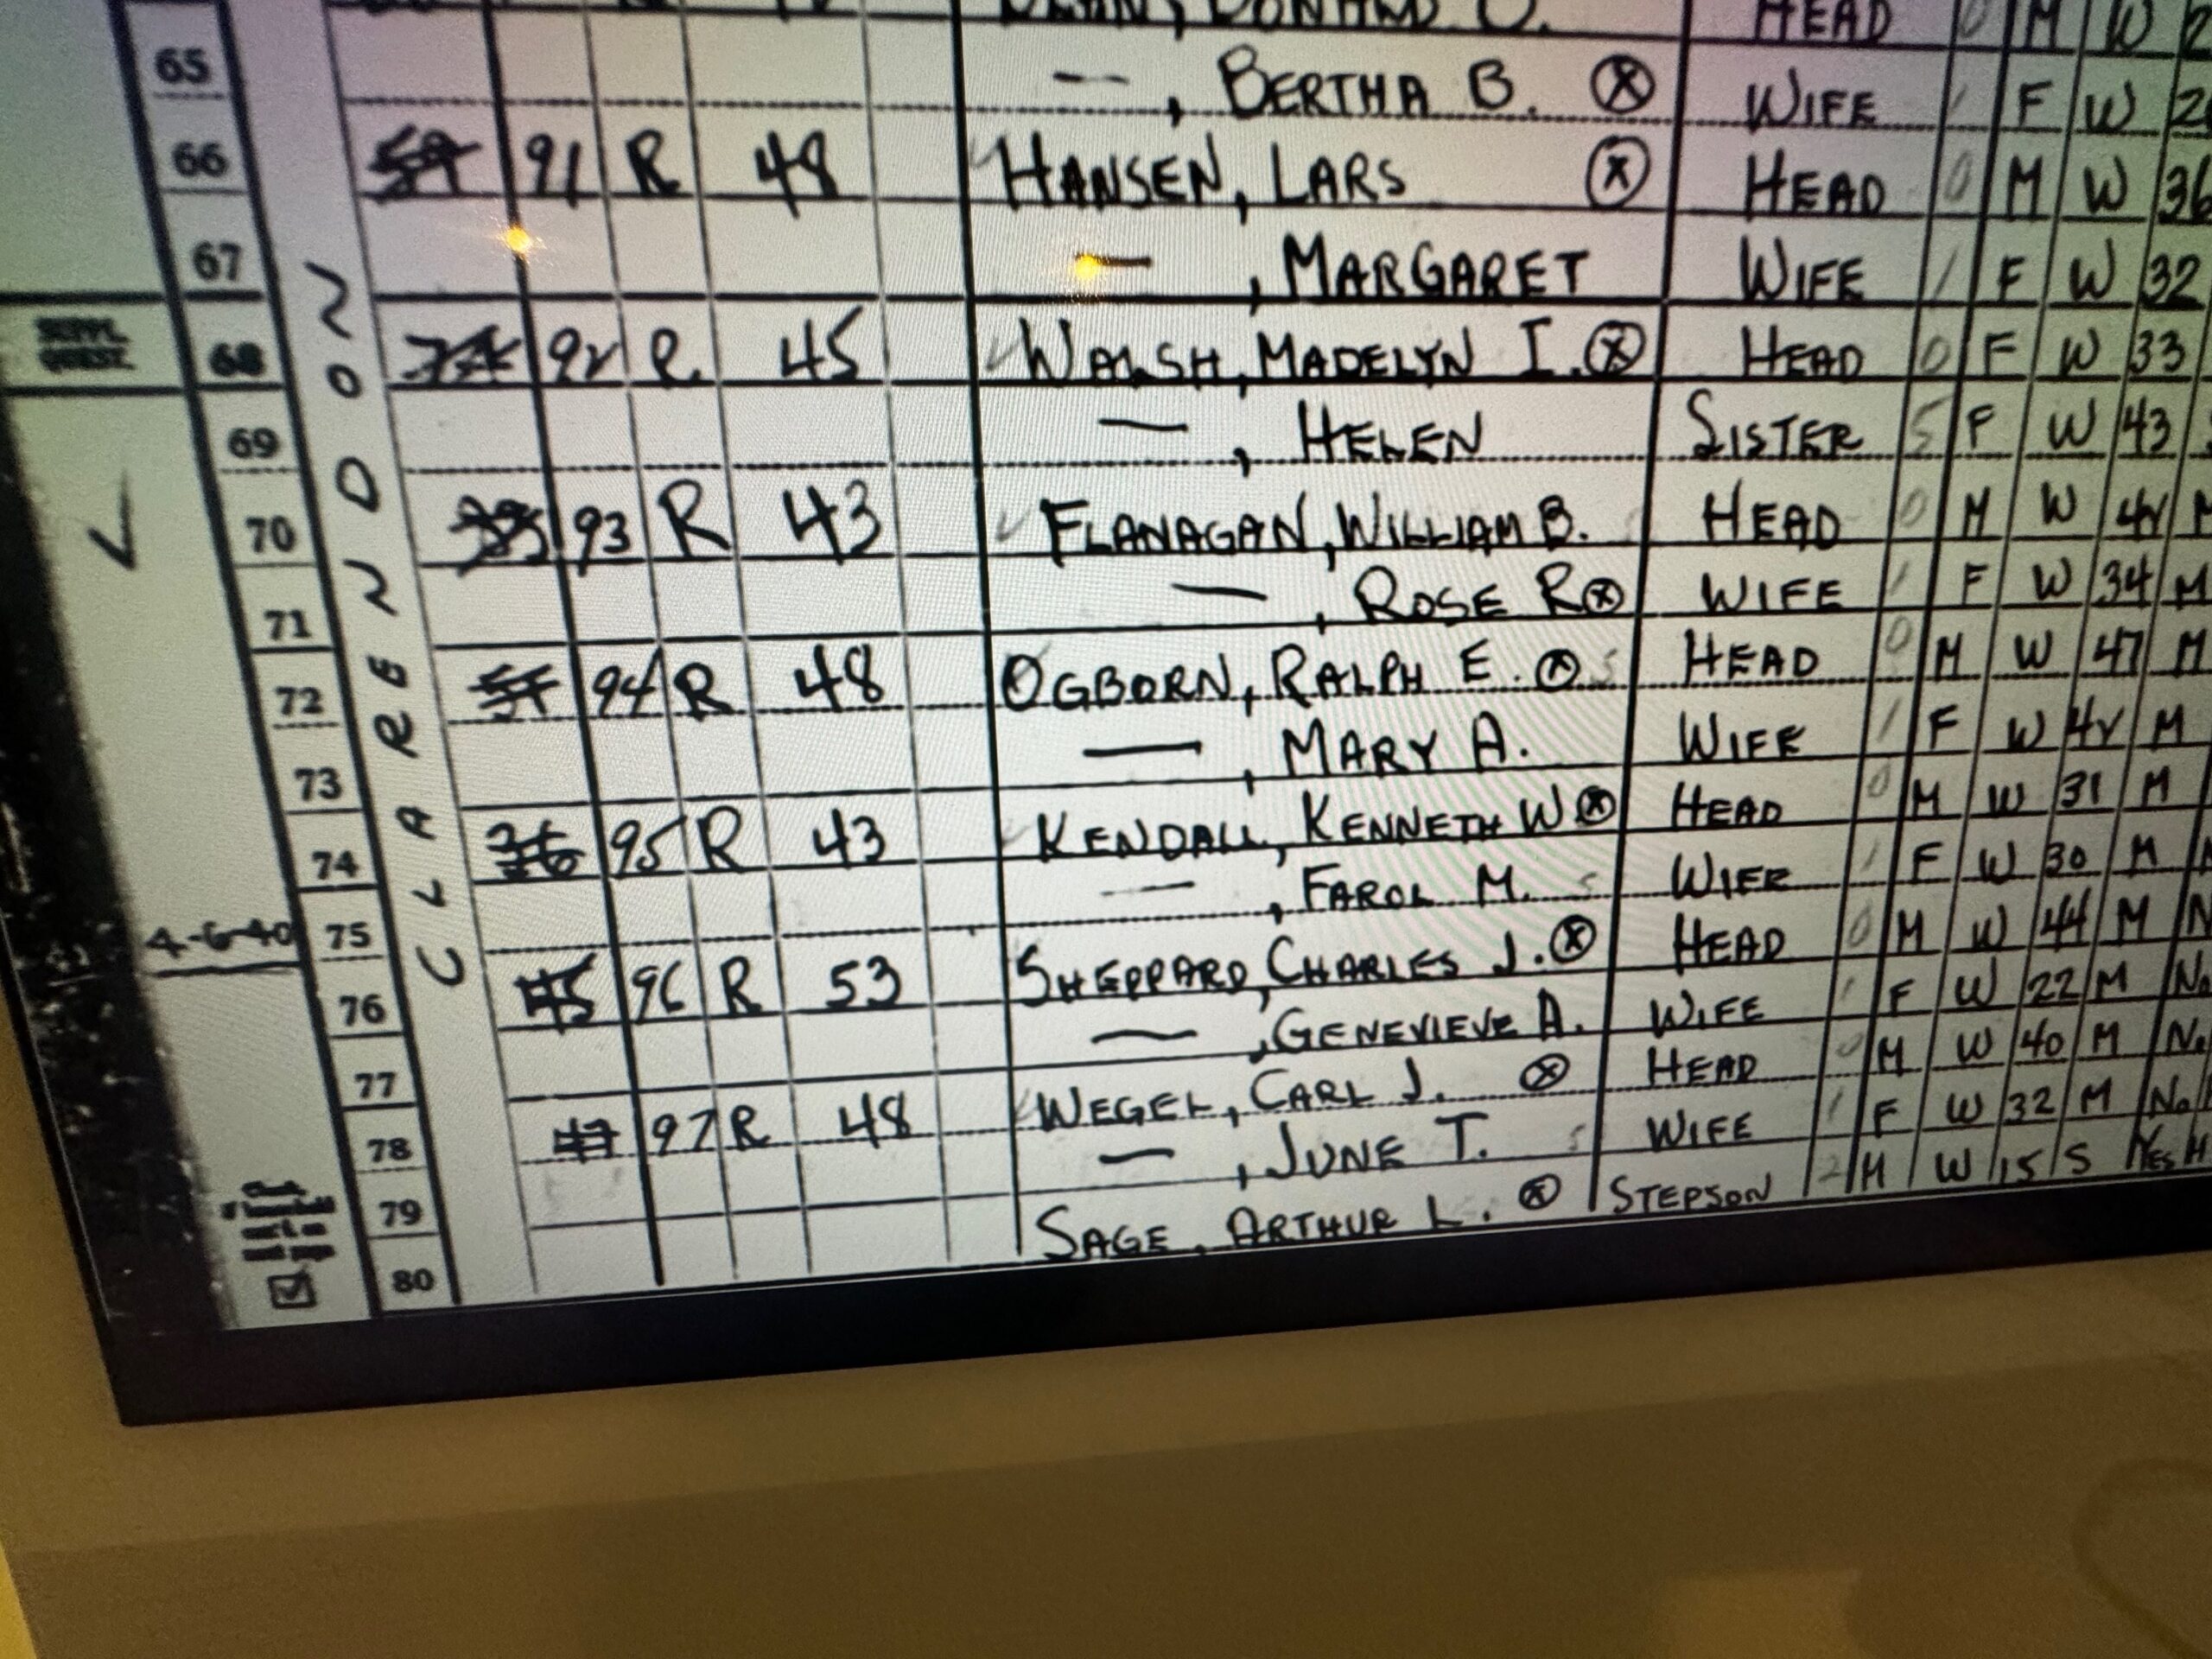 HEAD 0 M W 2
65 —, BERTHA B. ⓧ WIFE 1 F W 2
66 91 R 48 HANSEN, LARS ⓧ HEAD 0 M W 36
67 —, MARGARET WIFE 1 F W 32
SUPPL. QUEST. 68 92 R 45 WALSH, MADELYN I. ⓧ HEAD 0 F W 33
69 —, HELEN SISTER 5 F W 43
70 93 R 43 FLANAGAN, WILLIAM B. HEAD 0 M W 42 M
71 —, ROSE R ⓧ WIFE 1 F W 34 M
72 94 R 48 OGBORN, RALPH E. ⓧ HEAD 0 M W 47 M
73 —, MARY A. WIFE 1 F W 42 M
74 95 R 43 KENDALL, KENNETH W ⓧ HEAD 0 M W 31 M
4-6-40 75 —, FAROL M. WIFE 1 F W 30 M
76 96 R 53 SHEPPARD, CHARLES J. ⓧ HEAD 0 M W 44 M N
77 —, GENEVIEVE A. WIFE 1 F W 22 M No
78 97 R 48 WEGEL, CARL J. ⓧ HEAD 0 M W 40 M No
79 —, JUNE T. WIFE 1 F W 32 M No
80 SAGE, ARTHUR L. ⓧ STEPSON 2 M W 15 S YES H
CLARENDON